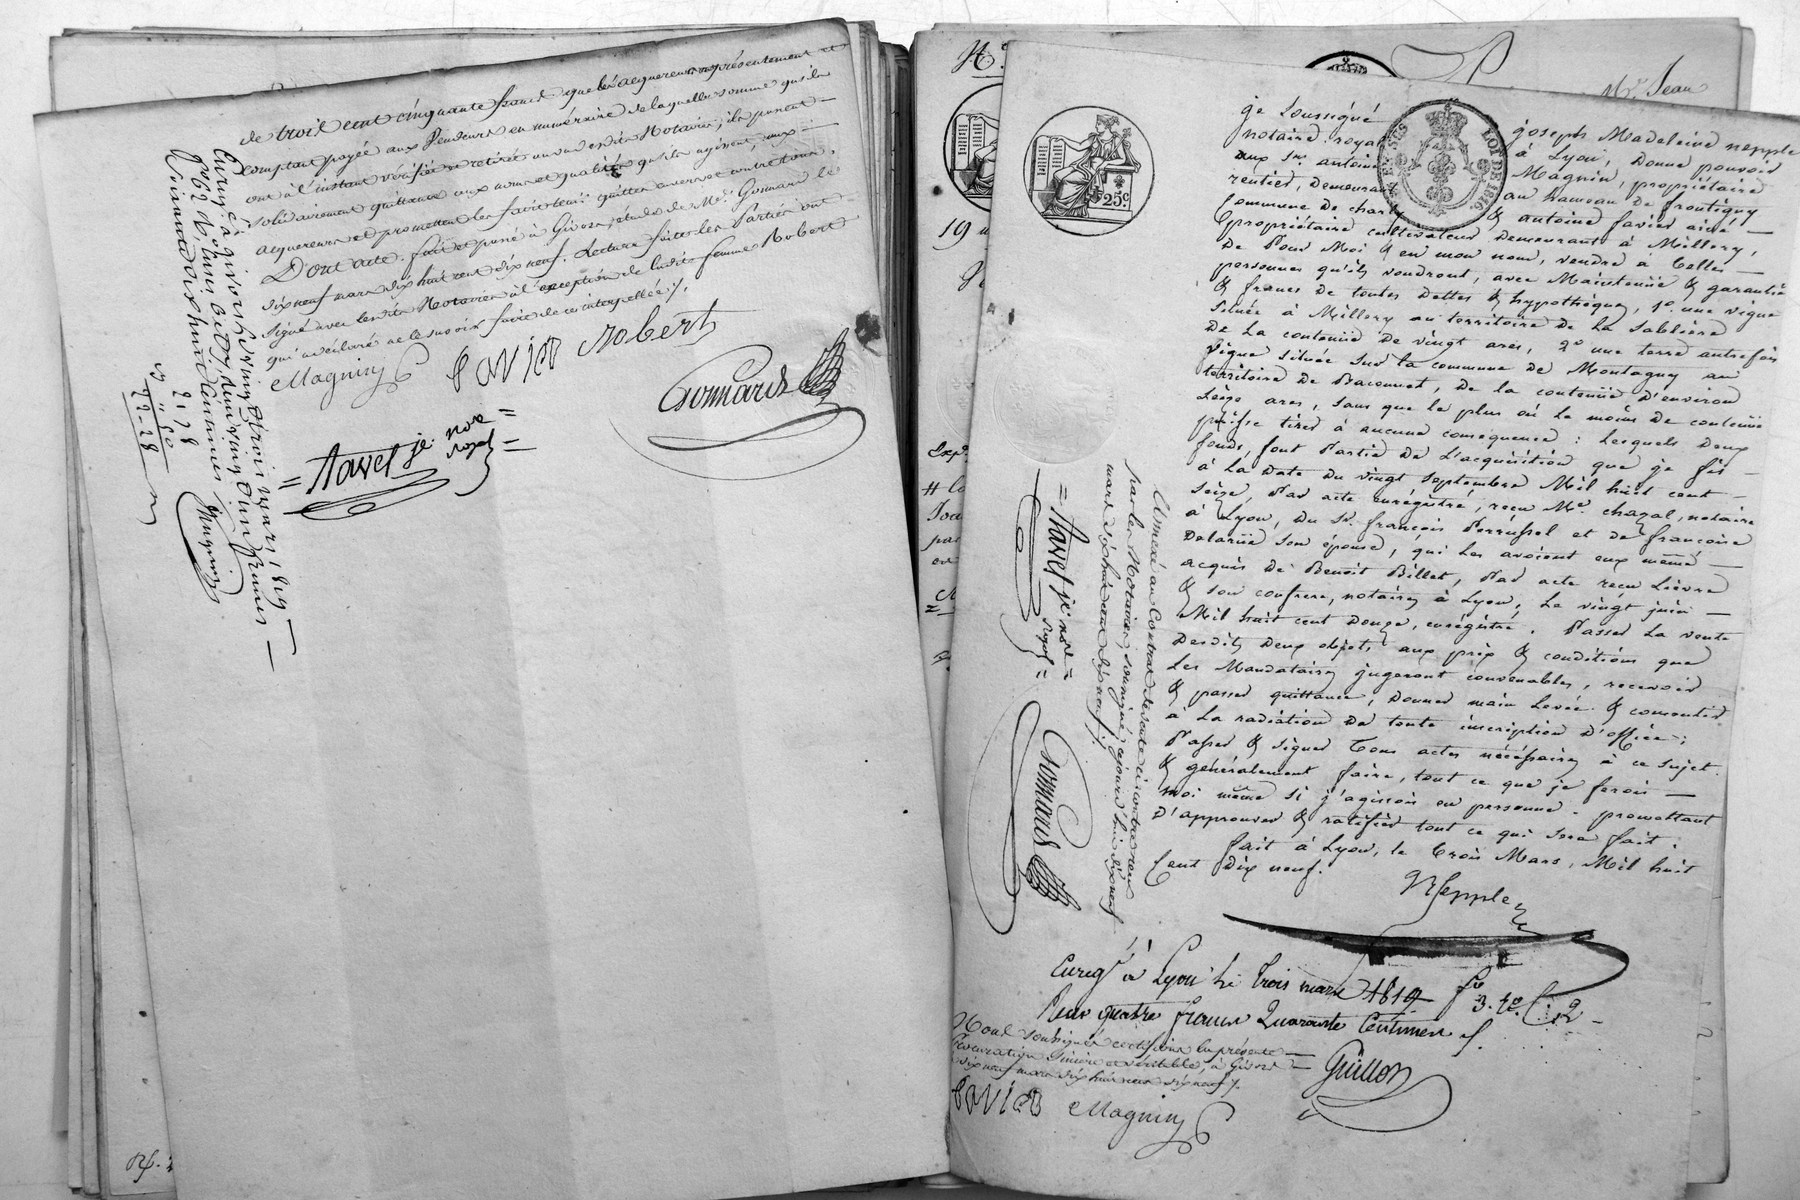 de trois cent cinquante francs que les acquereurs ont présentement et
comptant payée aux Vendeurs en numéraire de laquelle somme qu'ils
ont à l'instant vérifiée et retirée au vu desdits Notaires, ils passent
solidairement quittance aux noms et qualités qu'ils agissent, aux
acquereurs et promettent les faire tenir quittes envers et contre tous.
Dont acte. fait et passé à Givors, étude de Me. Gonnard le
dix neuf mars dix huit cent dix neuf. Lecture faite les Parties ont
signé avec lesdits Notaires à l'exception de ladite femme Robert
qui a déclaré ne le savoir faire de ce interpellée ./.
Magnin favier Robert
Gonnard
= Navet je. nore =
royal =
Enreg. à givors le vingt trois mars 1819
francs
9. 78
29. 28
No.
Mr. Jean
25c.
LOI DE 1816.
19
je soussigné joseph Madeleine nepple
notaire royal à Lyon, donne pouvoir
aux srs. antoine Magnin, propriétaire
rentier, demeurant au hameau de frontigny
commune de charly & antoine favier ainé
propriétaire cultivateur demeurant à Millery,
de Pour Moi & en mon nom, vendre à telles
personnes qu'ils voudront, avec Maintenüe & garantie
& francs de toutes dettes & hypothèques, 1o. une vigne
située à Millery au territoire de La Sablière
de La contenüe de vingt ares, 2o une terre autrefois
vigne située sur la commune de Montagny au
territoire de Baconnet, de la contenüe d'environ
seize ares, sans que le plus où le moins de contenüe
puisse tirer à aucune conséquence : Lesquels deux
fonds, font Partie de L'acquisition que je fis
à La date du vingt septembre Mil huit cent
seize, Par acte enrégistré, recu Me. chazal, notaire
à Lyon, du Sr. françois Perrussel et de francoise
delarüe son épouse, qui les avoient eux même
acquis de Benoit Billet, Par acte recu Lièvre
& son confrere, notaires à Lyon, Le vingt juin
Mil huit cent douze, enrégistré. Passer La vente
desdits deux objets aux prix & conditions que
Les Mandataires jugeront convenables, recevoir
& passer quittance, donner main Levée & consentir
à La radiation de toute inscription d'office;
Passer & signer tous actes nécéssaires à ce sujet
& généralement faire, tout ce que je ferois
moi même si j'agissois en personne. promettant
d'approuver & ratifier tout ce qui sera fait:
fait à Lyon, le trois Mars, Mil huit
Cent dix neuf.
Nepple
Enregé à Lyon le trois mars 1819 fo
3. Ro. C. 2
Reçu quatre francs Quarante Centimes
Guillon
Nous soussignés certifions la présente
Procuration sincère et véritable, à Givors
dix neuf mars dix huit cent dix neuf ./.
favier Magnin
Annexé au Contrat de vente ci contre reçu
par les Notaires soussignés cejourd'hui dix neuf
mars dix huit cent dix neuf ./.
= Navet je. nore =
royal =
Gonnard